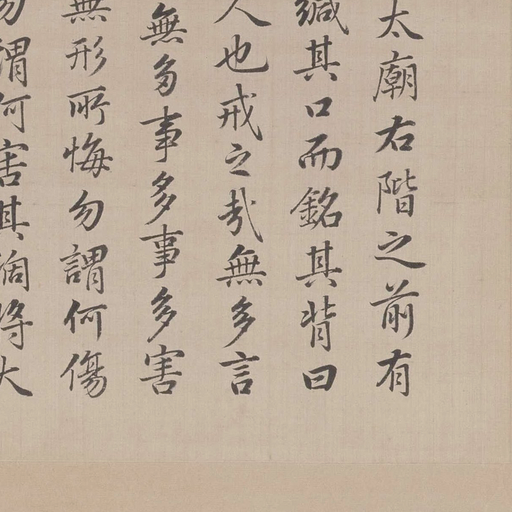 太廟右階之前有
緘其口而銘其背曰
人也戒之哉無多言
無多事多事多害
無形所悔勿謂何傷
勿謂何害其禍將大